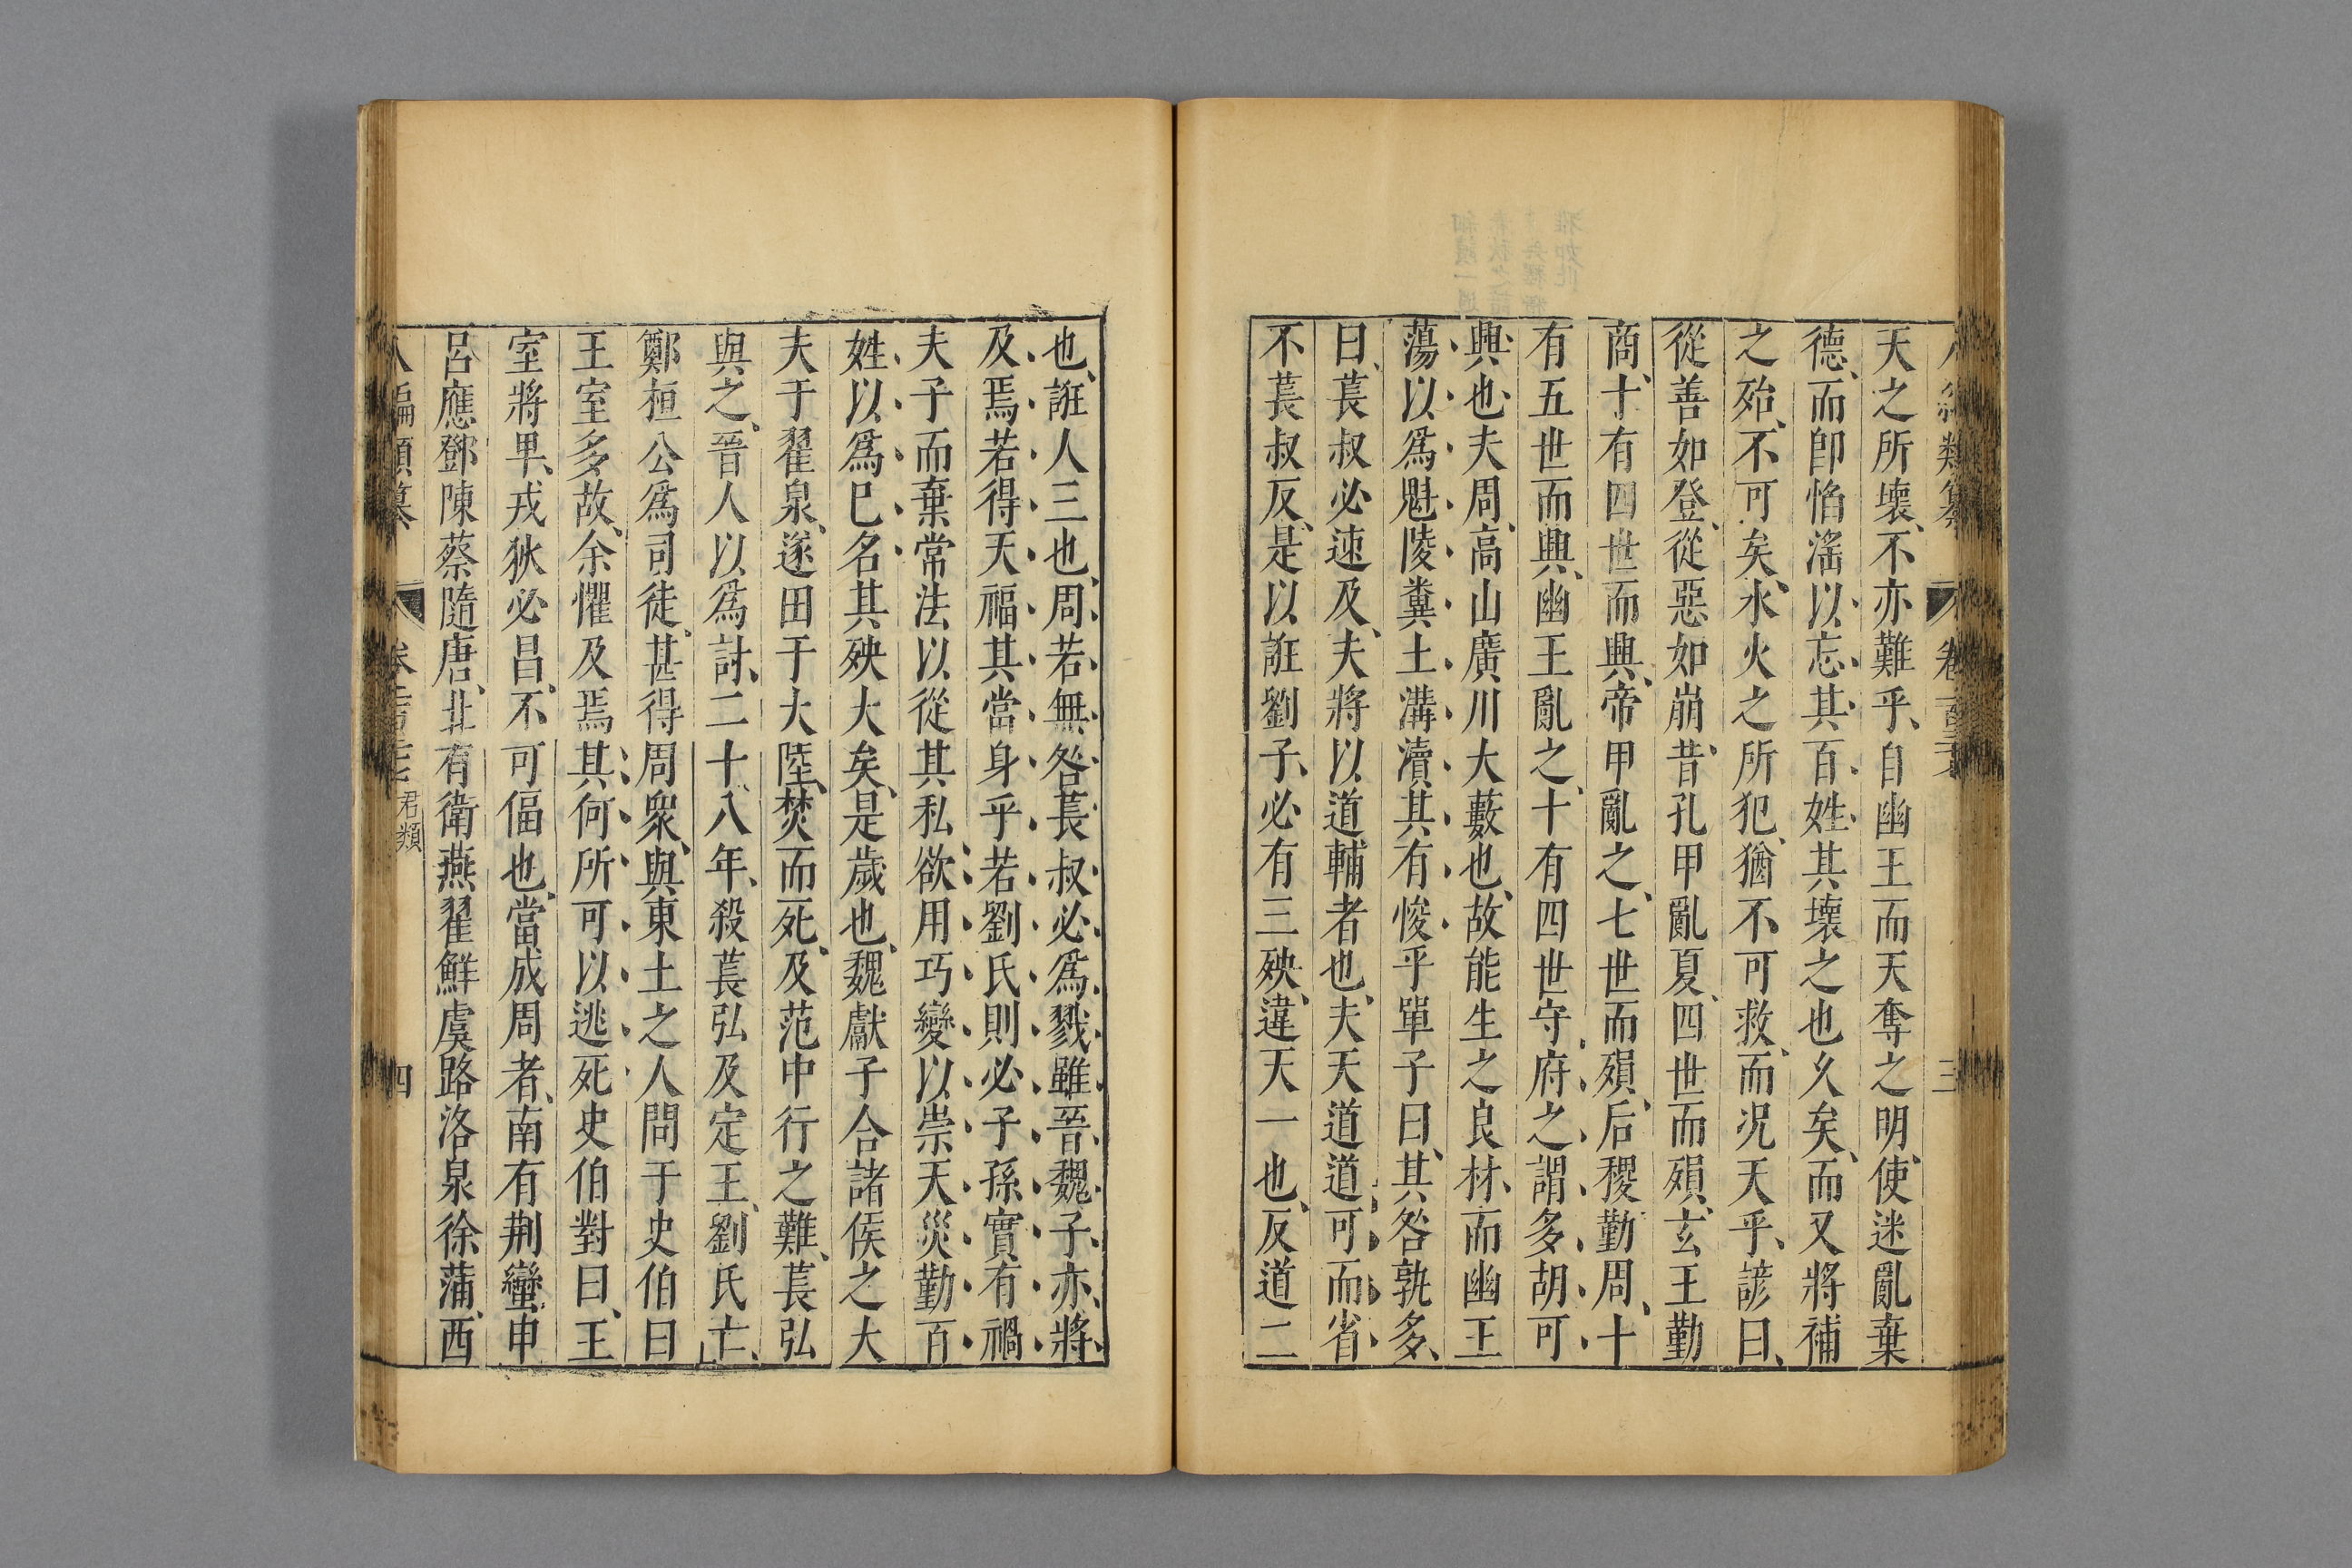 天之所壞、不亦難乎、自幽王而天奪之明、使迷亂棄
德、而卽慆滛以忘其百姓、其壞之也久矣、而又將補
之殆、不可矣、水火之所犯、猶不可救、而况天乎、諺曰、
從善如登、從惡如崩、昔孔甲亂夏、四世而殞、玄王勤
商、十有四世而興、帝甲亂之、七世而殞、后稷勤周、十
有五世而興、幽王亂之、十有四世、守府之謂多、胡可
興也、夫周、高山廣川大藪也、故能生之良材、而幽王
蕩以爲魁陵糞土溝瀆、其有悛乎、單子曰、其咎孰多、
曰、萇叔必速及、夫將以道輔者也、夫天道道可而省
不、萇叔反是、以誑劉子、必有三殃、違天一也、反道二
也、誑人三也、周若無咎、萇叔必爲戮、雖晉魏子、亦將
及焉、若得天福、其當身乎、若劉氏則必子孫實有禍
夫子而棄常法、以從其私欲、用巧變以崇天災、勤百
姓以爲已名、其殃大矣、是歲也、魏獻子合諸侯之大
夫于翟泉、遂田于大陸、焚而死、及范中行之難、萇弘
與之、晉人以爲討、二十八年、殺萇弘及定王、劉氏亡、
鄭桓公爲司徒、甚得周衆、與東土之人問于史伯曰
王室多故、余懼及焉、其何所可以逃死、史伯對曰、王
室將卑、戎狄必昌、不可偪也、當成周者、南有荆蠻、申
呂應鄧陳蔡隨唐、北有衛燕翟鮮虞路洛泉徐蒲、西
八編類纂 君類 四